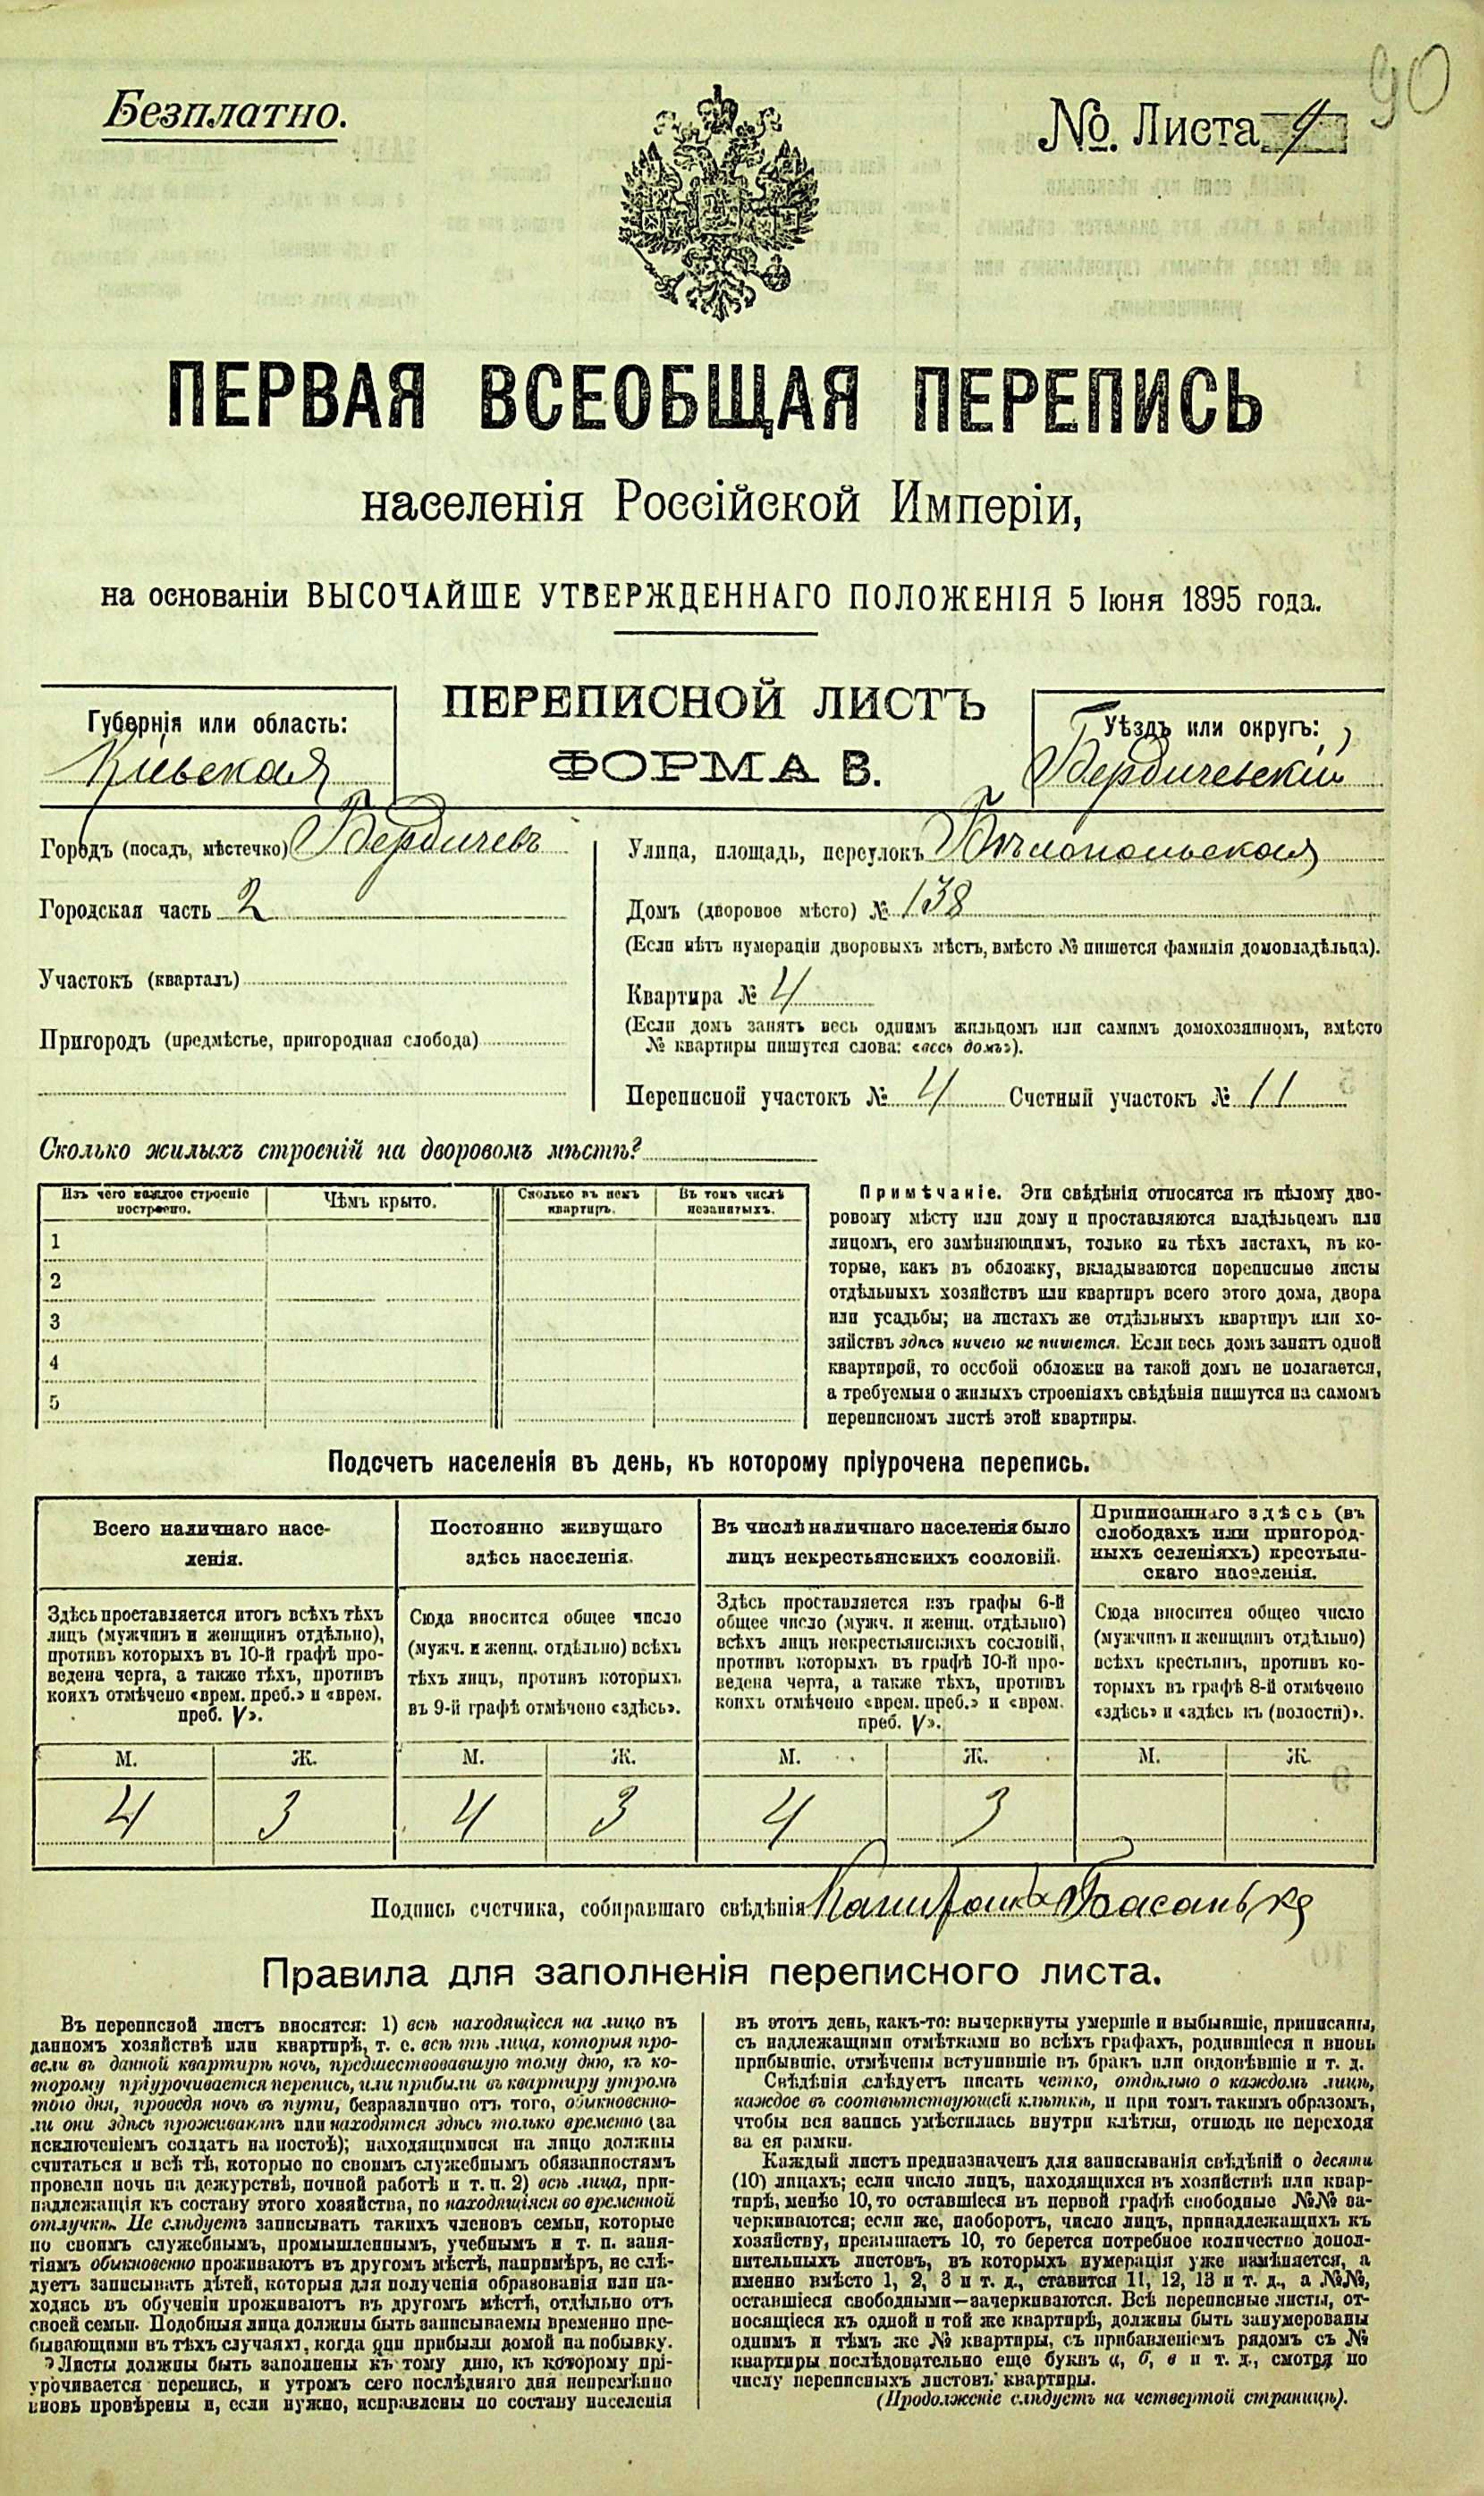 90
Безплатно.
№. Листа 4
ПЕРВАЯ ВСЕОБЩАЯ ПЕРЕПИСЬ
населенія Россійской Имперіи,
на основаніи ВЫСОЧАЙШЕ УТВЕРЖДЕННАГО ПОЛОЖЕНІЯ 5 Іюня 1895 года.
ПЕРЕПИСНОЙ ЛИСТЪ
ФОРМА В.
Губернія или область:
Кіевская
Уѣздъ или округъ:
Бердичевскій
Городъ (посадъ, мѣстечко) Бердичевъ
Городская часть 2
Участокъ (кварталъ)
Пригородъ (предмѣстье, пригородная слобода)
Улица, площадь, переулокъ Бѣлопольская
Домъ (дворовое мѣсто) № 138
(Если нѣтъ нумераціи дворовыхъ мѣстъ, вмѣсто № пишется фамилія домовладѣльца).
Квартира № 4
(Если домъ занятъ весь однимъ жильцомъ или самимъ домохозяиномъ, вмѣсто
№ квартиры пишутся слова: «весь домъ»).
Переписной участокъ № 4 Счетный участокъ № 11
Сколько жилыхъ строеній на дворовомъ мѣстѣ?
Изъ чего каждое строеніе
построено.
Чѣмъ крыто.
Сколько въ немъ
квартиръ.
Въ томъ числѣ
незанятыхъ.
1
2
3
4
5
Примѣчаніе. Эти свѣдѣнія относятся къ цѣлому дво-
ровому мѣсту или дому и проставляются владѣльцемъ или
лицомъ, его замѣняющимъ, только на тѣхъ листахъ, въ ко-
торые, какъ въ обложку, вкладываются переписные листы
отдѣльныхъ хозяйствъ или квартиръ всего этого дома, двора
или усадьбы; на листахъ же отдѣльныхъ квартиръ или хо-
зяйствъ здѣсь ничего не пишется. Если весь домъ занятъ одной
квартирой, то особой обложки на такой домъ не полагается,
а требуемыя о жилыхъ строеніяхъ свѣдѣнія пишутся на самомъ
переписномъ листѣ этой квартиры.
Подсчетъ населенія въ день, къ которому пріурочена перепись.
Всего наличнаго насе-
ленія.
Здѣсь проставляется итогъ всѣхъ тѣхъ
лицъ (мужчинъ и женщинъ отдѣльно),
противъ которыхъ въ 10-й графѣ про-
ведена черта, а также тѣхъ, противъ
коихъ отмѣчено «врем. преб.» и «врем.
преб. V».
М. Ж.
4 3
Постоянно живущаго
здѣсь населенія.
Сюда вносится общее число
(мужч. и женщ. отдѣльно) всѣхъ
тѣхъ лицъ, противъ которыхъ
въ 9-й графѣ отмѣчено «здѣсь».
М. Ж.
4 3
Въ числѣ наличнаго населенія было
лицъ некрестьянскихъ сословій.
Здѣсь проставляется изъ графы 6-й
общее число (мужч. и женщ. отдѣльно)
всѣхъ лицъ некрестьянскихъ сословій,
противъ которыхъ въ графѣ 10-й про-
ведена черта, а также тѣхъ, противъ
коихъ отмѣчено «врем. преб.» и «врем.
преб. V».
М. Ж.
4 3
Приписаннаго здѣсь (въ
слободахъ или пригород-
ныхъ селеніяхъ) крестьян-
скаго населенія.
Сюда вносится общее число
(мужчинъ и женщинъ отдѣльно)
всѣхъ крестьянъ, противъ ко-
торыхъ въ графѣ 8-й отмѣчено
«здѣсь» и «здѣсь къ (волости)».
М. Ж.
Подпись счетчика, собиравшаго свѣдѣнія
Правила для заполненія переписного листа.
Въ переписной листъ вносятся: 1) всѣ находящіеся на лицо въ
данномъ хозяйствѣ или квартирѣ, т. е. всѣ тѣ лица, которыя про-
вели въ данной квартирѣ ночь, предшествовавшую тому дню, къ ко-
торому пріурочивается перепись, или прибыли въ квартиру утромъ
того дня, проведя ночь въ пути, безразлично отъ того, обыкновенно-
ли они здѣсь проживаютъ или находятся здѣсь только временно (за
исключеніемъ солдатъ на постоѣ); находящимися на лицо должны
считаться и всѣ тѣ, которые по своимъ служебнымъ обязанностямъ
провели ночь на дежурствѣ, ночной работѣ и т. п. 2) всѣ лица, при-
надлежащія къ составу этого хозяйства, но находящіяся во временной
отлучкѣ. Не слѣдуетъ записывать такихъ членовъ семьи, которые
по своимъ служебнымъ, промышленнымъ, учебнымъ и т. п. заня-
тіямъ обыкновенно проживаютъ въ другомъ мѣстѣ, напримѣръ, не слѣ-
дуетъ записывать дѣтей, которыя для полученія образованія или на-
ходясь въ обученіи проживаютъ въ другомъ мѣстѣ, отдѣльно отъ
своей семьи. Подобныя лица должны быть записываемы временно пре-
бывающими въ тѣхъ случаяхъ, когда они прибыли домой на побывку.
Листы должны быть заполнены къ тому дню, къ которому прі-
урочивается перепись, и утромъ сего послѣдняго дня непремѣнно
вновь провѣрены и, если нужно, исправлены по составу населенія
въ этотъ день, какъ-то: вычеркнуты умершіе и выбывшіе, приписаны,
съ надлежащими отмѣтками во всѣхъ графахъ, родившіеся и вновь
прибывшіе, отмѣчены вступившіе въ бракъ или овдовѣвшіе и т. д.
Свѣдѣнія слѣдуетъ писать четко, отдѣльно о каждомъ лицѣ,
каждое въ соотвѣтствующей клѣткѣ, и при томъ такимъ образомъ,
чтобы вся запись умѣстилась внутри клѣтки, отнюдь не переходя
за ея рамки.
Каждый листъ предназначенъ для записыванія свѣдѣній о десяти
(10) лицахъ; если число лицъ, находящихся въ хозяйствѣ или квар-
тирѣ, менѣе 10, то оставшіеся въ первой графѣ свободные №№ за-
черкиваются; если же, наоборотъ, число лицъ, принадлежащихъ къ
хозяйству, превышаетъ 10, то берется потребное количество допол-
нительныхъ листовъ, въ которыхъ нумерація уже измѣняется, а
именно вмѣсто 1, 2, 3 и т. д., ставится 11, 12, 13 и т. д., а №№,
оставшіеся свободными—зачеркиваются. Всѣ переписные листы, от-
носящіеся къ одной и той же квартирѣ, должны быть занумерованы
однимъ и тѣмъ же № квартиры, съ прибавленіемъ рядомъ съ №
квартиры послѣдовательно еще буквъ а, б, в и т. д., смотря по
числу переписныхъ листовъ квартиры.
(Продолженіе слѣдуетъ на четвертой страницѣ).